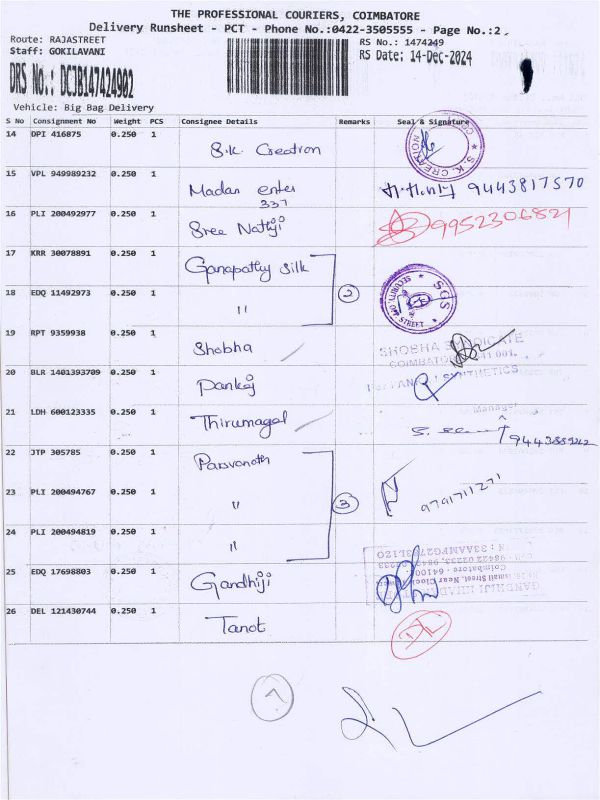 THE PROFESSIONAL COURIERS, COIMBATORE
Delivery Runsheet - PCT - Phone No.:0422-3505555 - Page No.:2,
Route: RAJASTREET
Staff: GOKILAVANI
RS No.: 1474249
RS Date: 14-Dec-2024
DRS No.: DCJB147424902
Vehicle: Big Bag Delivery
S No Consignment No Weight PCS Consignee Details Remarks Seal & Signature
14 DPI 416875 0.250 1 S.K. Creation
S. K. CREATION
15 VPL 949989232 0.250 1 Madan enter 9443817570
337
16 PLI 200492977 0.250 1 Sree Nathji 9952306821
17 KRR 30078891 0.250 1 Ganapathy silk
2
18 EDQ 11492973 0.250 1 "
SGS
SECURITY
STREET
19 RPT 9359938 0.250 1 Shobha
SHOBHA SYNDICATE
COIMBATORE 641 001.
20 BLR 1401393709 0.250 1 Pankaj
SYNTHETICS
Manager
21 LDH 600123335 0.250 1 Thirumagal
22 JTP 305785 0.250 1 Parsvanath
23 PLI 200494767 0.250 1 " 3 9791711271
24 PLI 200494819 0.250 1 "
25 EDQ 17698803 0.250 1 Gandhiji
GANDHIJI
Coimbatore
26 DEL 121430744 0.250 1 Tanot